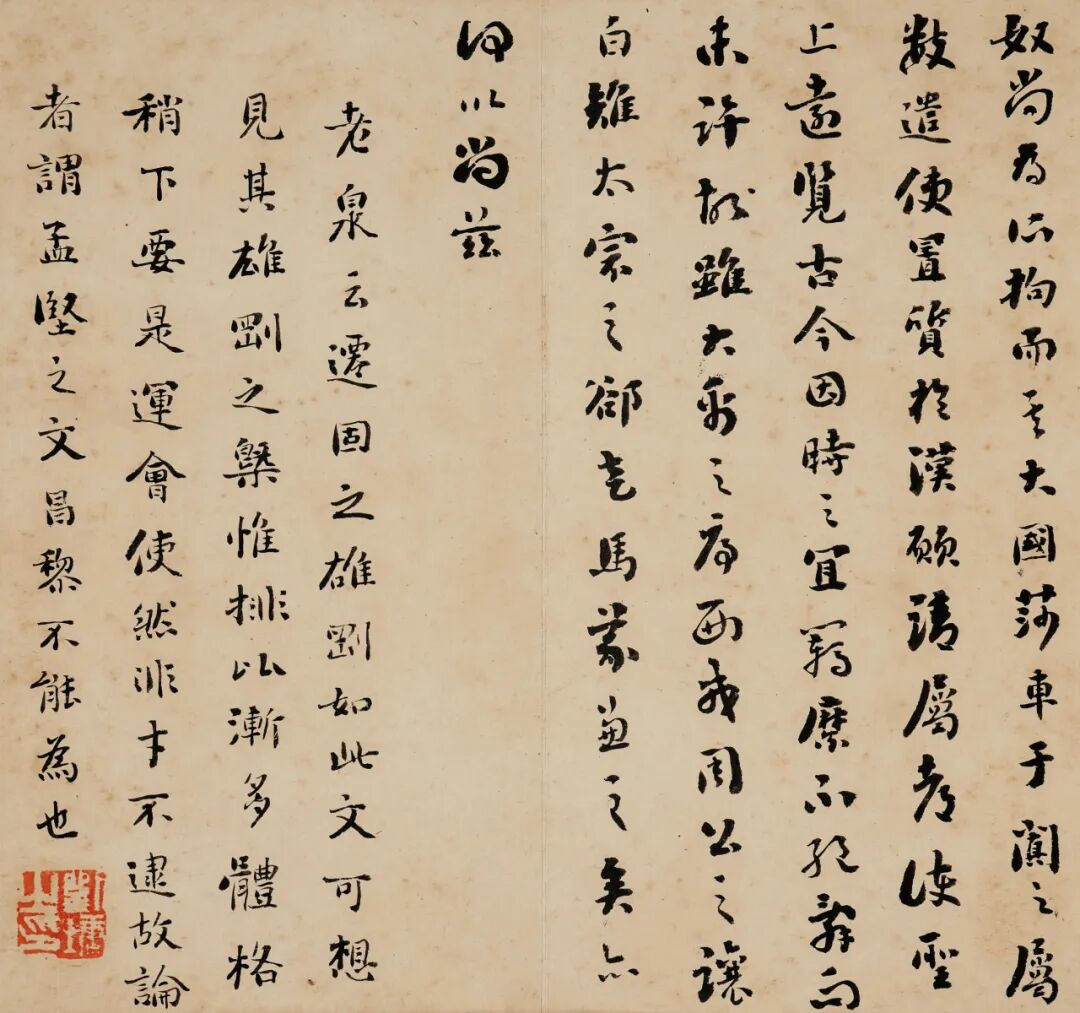 奴尚為所拘而其大國莎車于闐之屬
數遣使置質於漢願請屬都護聖
上遠覽古今因時之宜羈縻不絕辭而
未許故雖大禹之序西戎周公之讓
白雉太宗之卻走馬義兼之矣亦
何以尚茲
老泉云遷固之雄剛如此文可想
見其雄剛之槩惟排比漸多體格
稍下要是運會使然非才不逮故論
者謂孟堅之文昌黎不能為也
劉墉之印